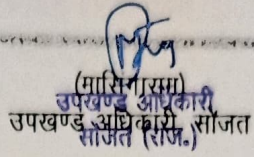 (मासिंगाराम)
उपखण्ड अधिकारी
उपखण्ड अधिकारी, सोजत
सोजत (राज.)